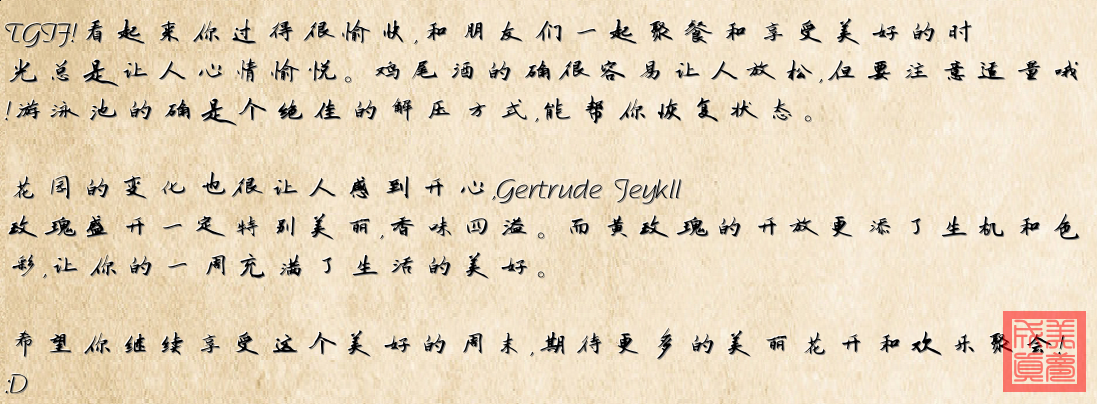 TGIF!看起来你过得很愉快,和朋友们一起聚餐和享受美好的时
光总是让人心情愉悦。鸡尾酒的确很容易让人放松,但要注意适量哦
!游泳池的确是个绝佳的解压方式,能帮你恢复状态。
花园的变化也很让人感到开心,Gertrude Jeykll
玫瑰盛开一定特别美丽,香味四溢。而黄玫瑰的开放更添了生机和色
彩,让你的一周充满了生活的美好。
希望你继续享受这个美好的周末,期待更多的美丽花开和欢乐聚会!
:D
美梦成真